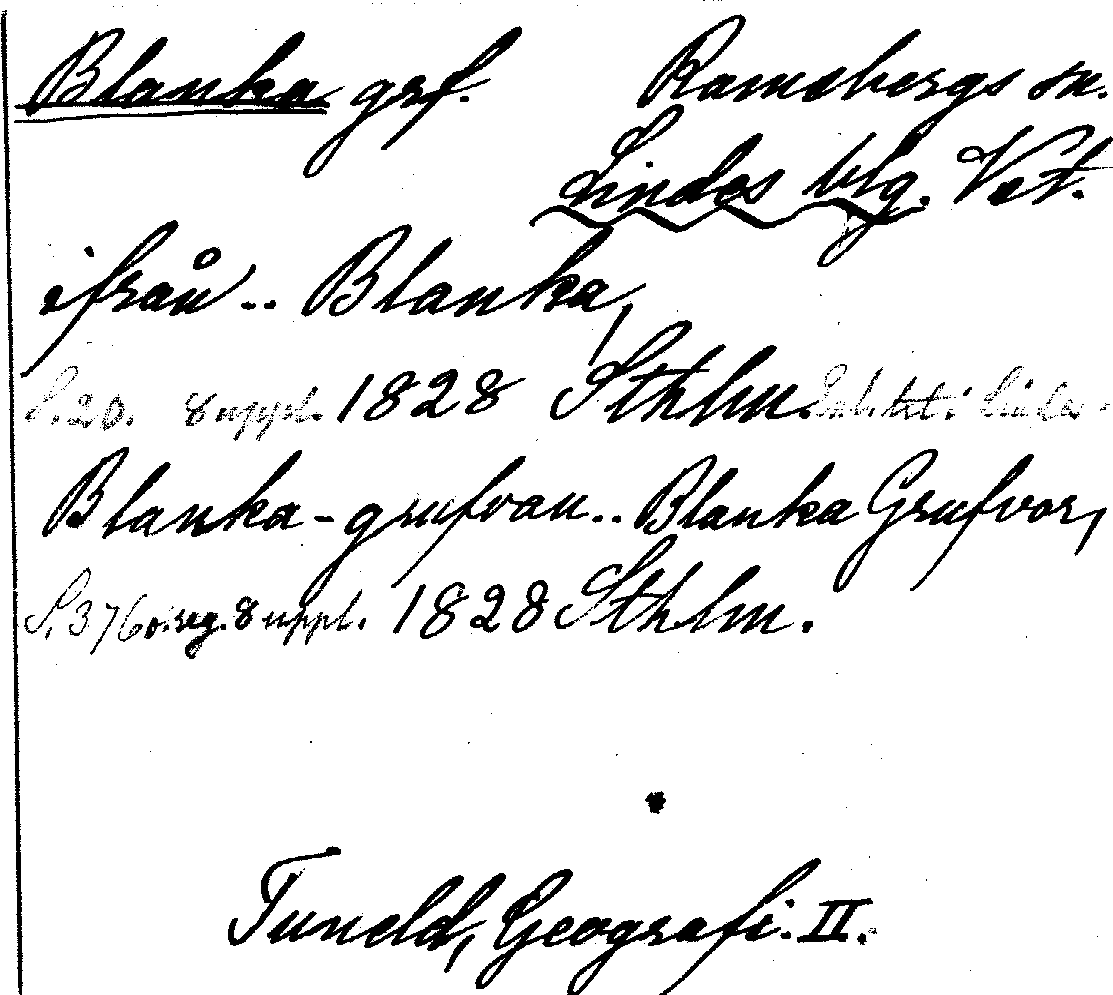 Blanka grf. Ramsbergs sn.
Lindes blg. Vstm.
ifrån .. Blanka,
S. 20. 8 uppl. 1828 Sthlm.
Blanka-grufvan .. Blanka Grufvor,
S. 376 o. reg. 8 uppl. 1828 Sthlm.
Tuneld, Geografi. II.